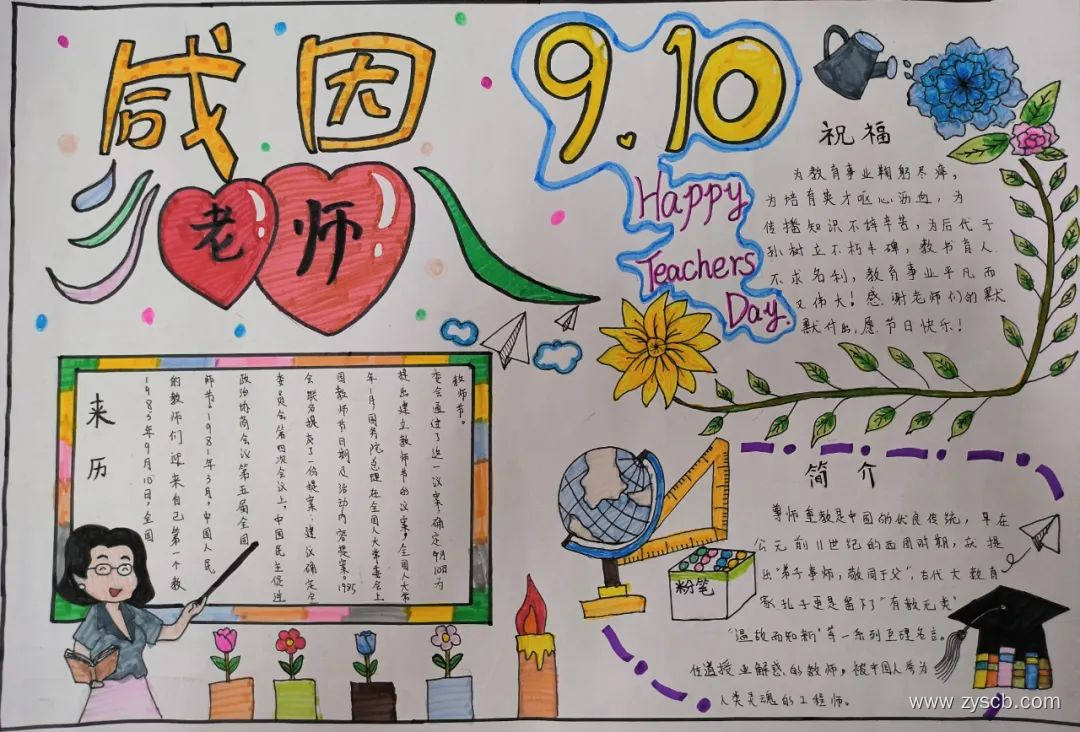 感恩
老师
9.10
Happy
Teachers
Day.
祝福
为教育事业鞠躬尽瘁,
为培育英才呕心沥血,为
传播知识不辞辛苦,为后代子
孙树立不朽丰碑,教书育人
不求名利,教育事业平凡而
又伟大!感谢老师们的默
默付出,愿节日快乐!
来历
1985年9月10日,全国
的教师们迎来自己第一个教
师节。1981年3月,中国人民
政治协商会议第五届全国
委员会第四次会议上,中国民主促进
会联名提交了一份提案:建议确定全
国教师节日期及活动内容提案。1985
年1月国务院总理在全国人大常委会上
提出建立教师节的议案,全国人大常
委会通过了这一议案,确定9月10日为
教师节。
简介
尊师重教是中国的优良传统,早在
公元前11世纪的西周时期,就提
出“弟子事师,敬同于父”,古代大教育
家孔子更是留下了“有教无类”
“温故而知新”等一系列至理名言。
传道授业解惑的教师,被中国人誉为
人类灵魂的工程师。
粉笔
www.zyscb.com